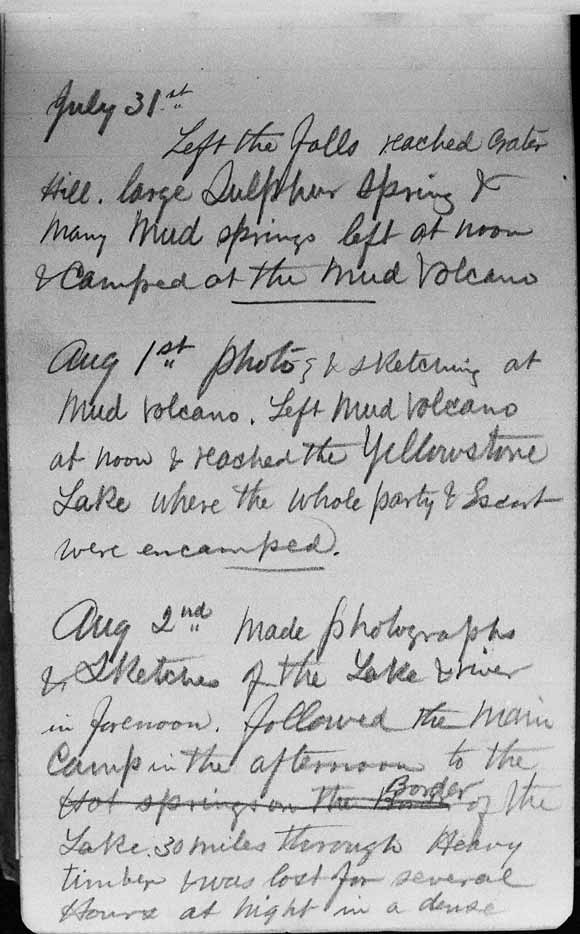 July 31st
Left the Falls reached Crater
Hill. large Sulphur Spring &
Many Mud springs left at noon
& Camped at the Mud Volcano
Aug 1st photog & sketching at
Mud Volcano. Left Mud Volcano
at noon & reached the Yellowstone
Lake where the whole party & Escort
were encamped.
Aug 2nd Made photographs
& Sketches of the Lake & river
in forenoon. followed the Main
Camp in the afternoon to the
Hot springs on the Border of the
Lake. 30 miles through Heavy
timber & was lost for several
Hours at night in a dense